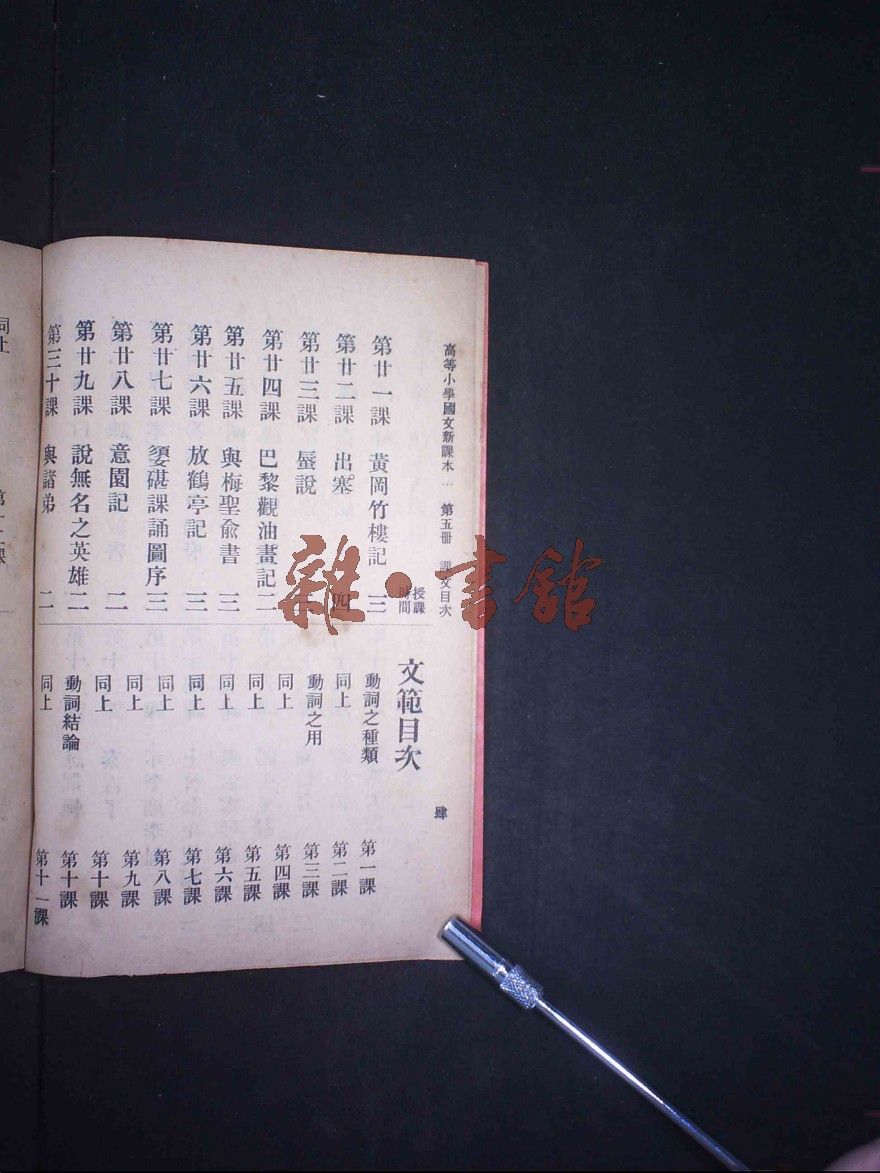 高等小學國文新課本 第五冊 課文目次 肆
授課時間
第廿一課 黃岡竹樓記 三
第廿二課 出塞 四
第廿三課 蜃說
第廿四課 巴黎觀油畫記 二
第廿五課 與梅聖俞書 三
第廿六課 放鶴亭記 三
第廿七課 媭碪課誦圖序 三
第廿八課 意園記 二
第廿九課 說無名之英雄 二
第三十課 與諸弟 二
文範目次
動詞之種類 第一課
同上 第二課
動詞之用 第三課
同上 第四課
同上 第五課
同上 第六課
同上 第七課
同上 第八課
同上 第九課
同上 第十課
動詞結論 第十課
同上 第十一課
同上
雜·書館